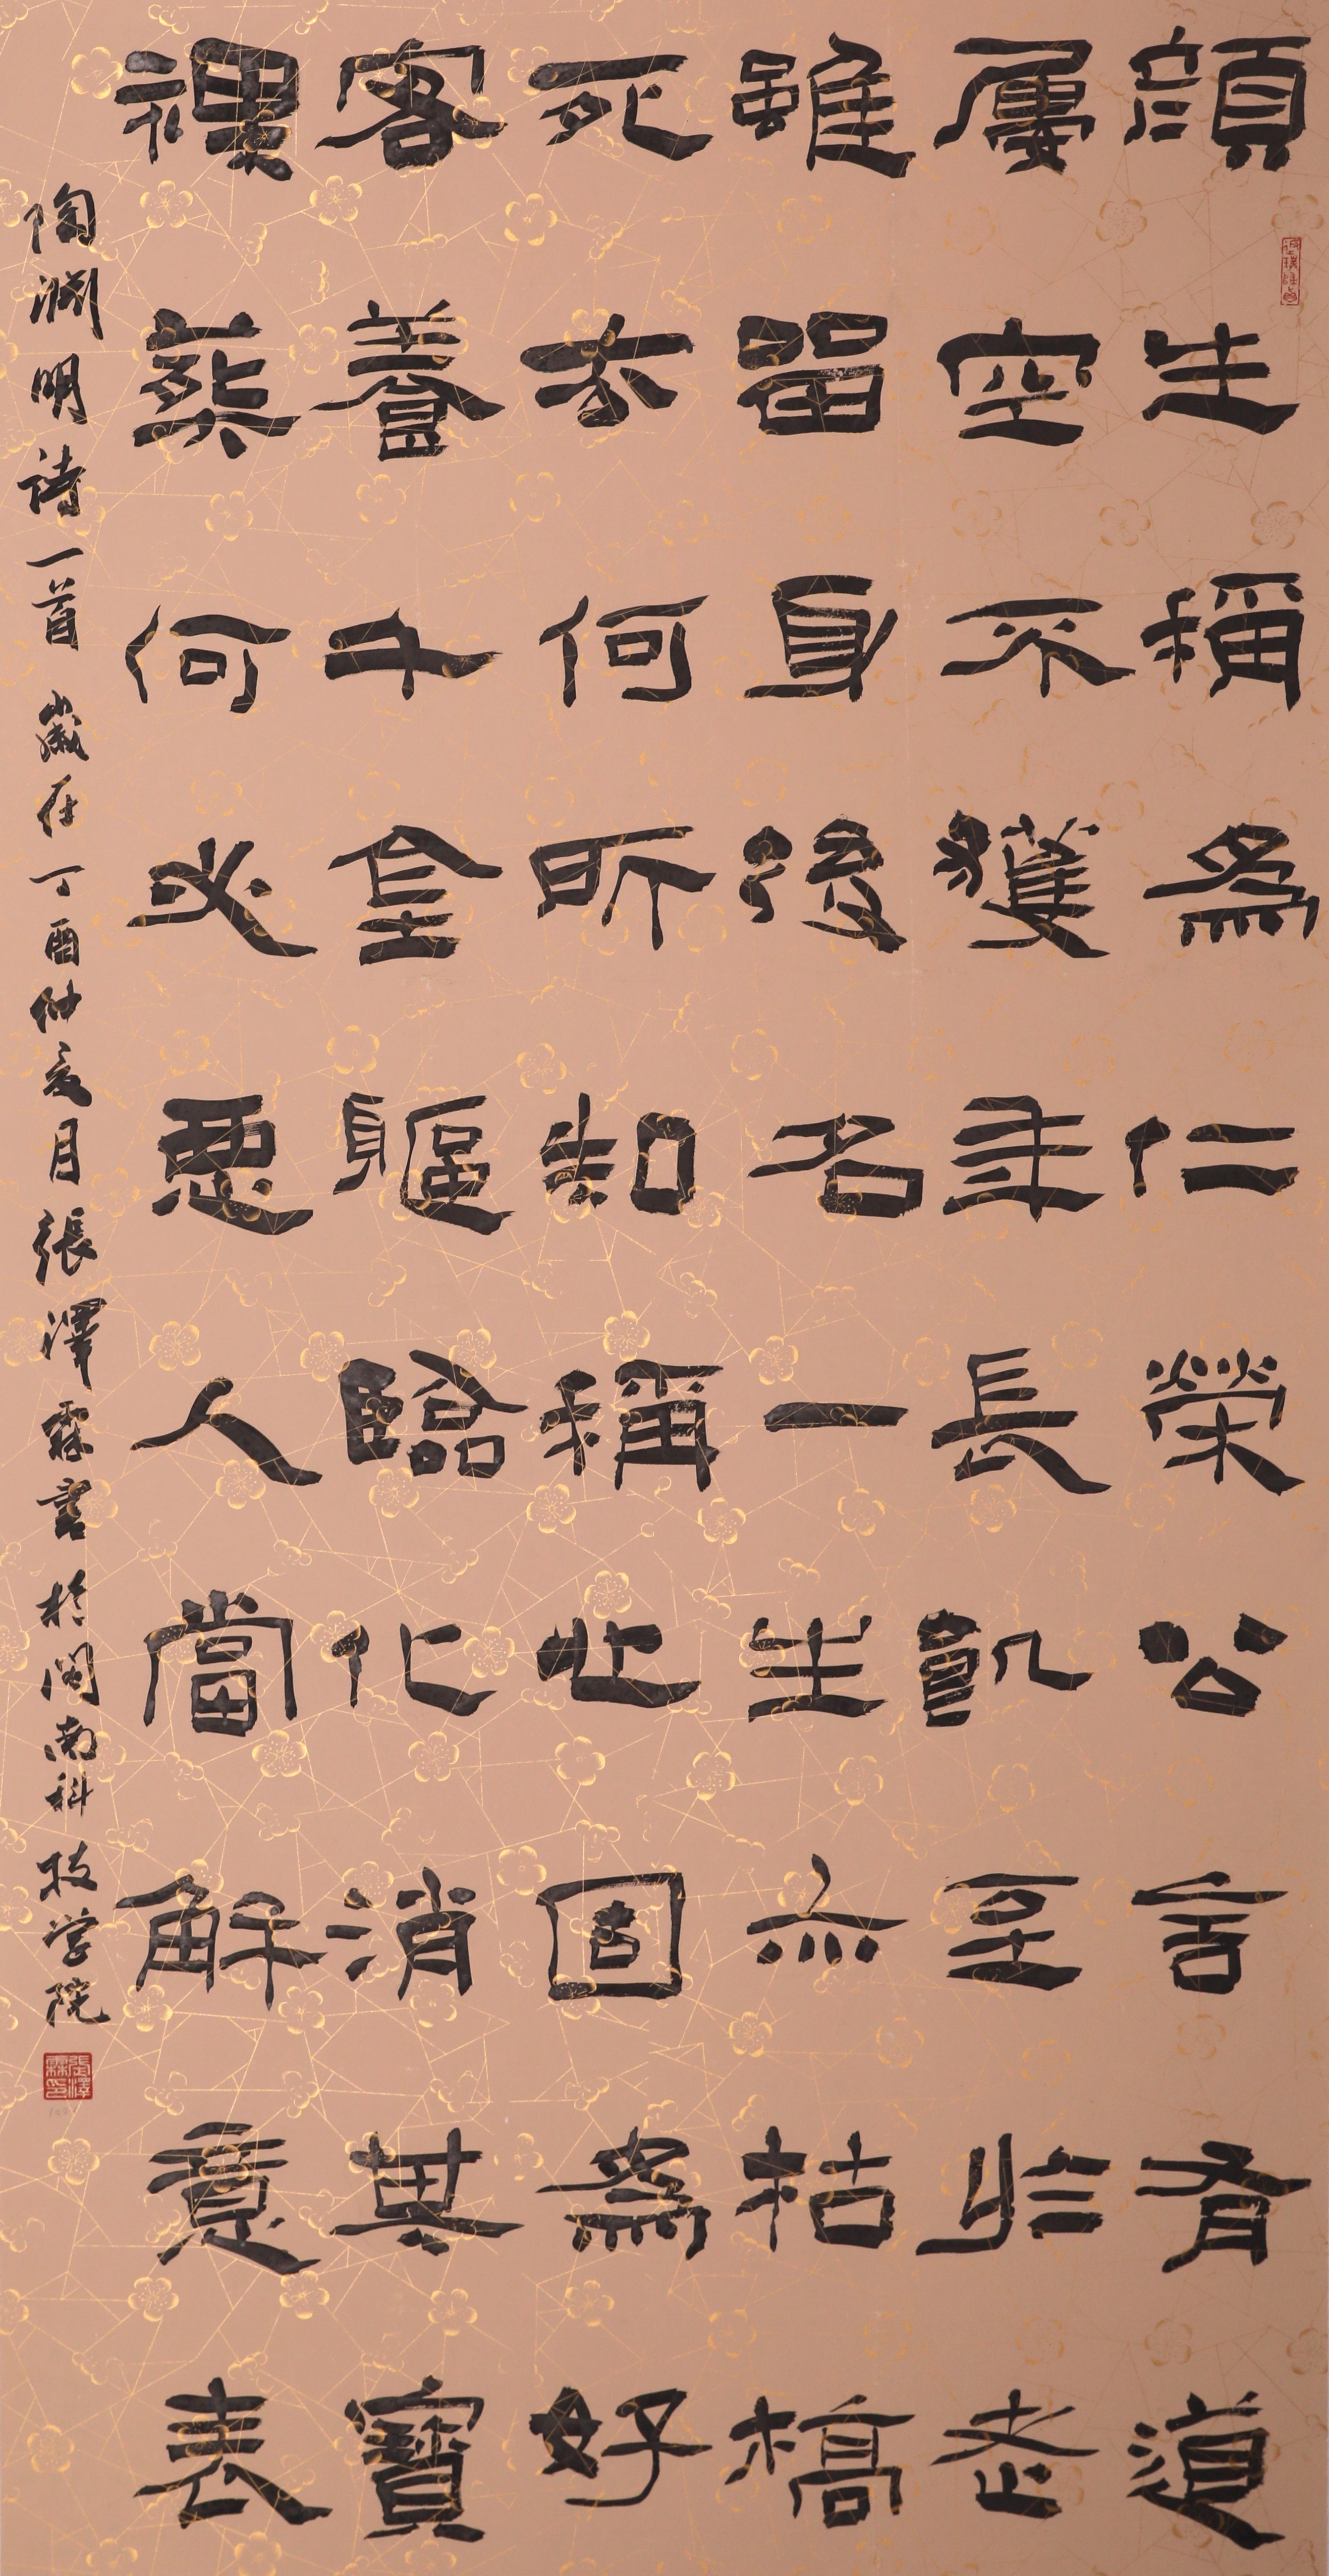 顏生稱為仁榮公言有道
屢空不獲年長飢至於老
雖留身後名一生亦枯槁
死去何所知稱心固為好
客養千金軀臨化消其寶
裸葬何必惡人當解意表
陶淵明詩一首 歲在丁酉仲夏月張澤霖書於閩南科技学院
張澤霖印